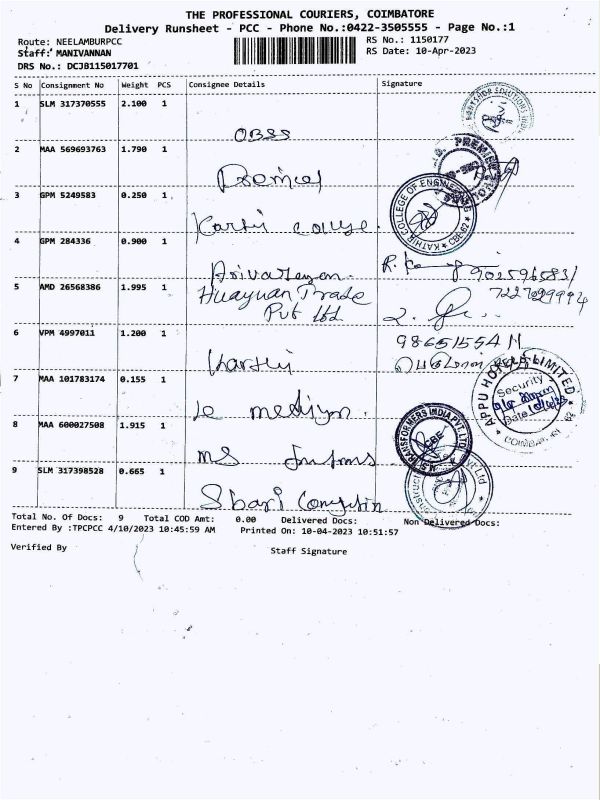 THE PROFESSIONAL COURIERS, COIMBATORE
Delivery Runsheet - PCC - Phone No.:0422-3505555 - Page No.:1
Route: NEELAMBURPCC
RS No.: 1150177
Staff: MANIVANNAN
RS Date: 10-Apr-2023
DRS No.: DCJB115017701
S No Consignment No Weight PCS Consignee Details Signature
1 SLM 317370555 2.100 1
OBSS
2 MAA 569693763 1.790 1
Premier
3 GPM 5249583 0.250 1
KATHIR COLLEGE OF ENGINEERING CBE-62
4 GPM 284336 0.900 1
5 AMD 26568386 1.995 1
Huayuan Trade
Pvt Ltd
6 VPM 4997011 1.200 1
9865155411
7 MAA 101783174 0.155 1
APPU HOTELS LIMITED
Security
Date
COIMBATORE
Le mediyn.
8 MAA 600027508 1.915 1
TRANSFORMERS INDIA PVT LTD
CBE
9 SLM 317398528 0.665 1
Total No. Of Docs: 9 Total COD Amt: 0.00 Delivered Docs: Non Delivered Docs:
Entered By :TPCPCC 4/10/2023 10:45:59 AM Printed On: 10-04-2023 10:51:57
Verified By
Staff Signature